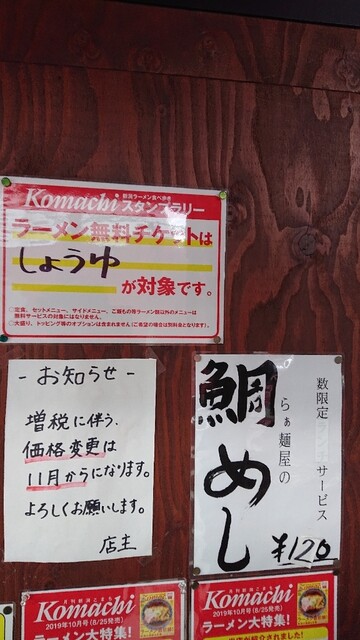 Komachi 新潟ラーメン食べ歩き
スタンプラリー
ラーメン無料チケットは
しょうゆ
が対象です。
○定食、セットメニュー、サイドメニュー、ご飯もの等ラーメン類以外のメニューは
無料サービスの対象にはなりません。
○大盛り、トッピング等のオプションは含まれません(ご希望の場合は別料金となります)。
-お知らせ-
増税に伴う、
価格変更は
11月からになります。
よろしくお願いします。
店主
数限定
サービス
らぁ麺屋の
鯛めし
¥120
月刊新潟こまち
Komachi
2019年10月号(8/25発売)
ラーメン大特集!
月刊新潟こまち
Komachi
2019年10月号(8/25発売)
ラーメン大特集!